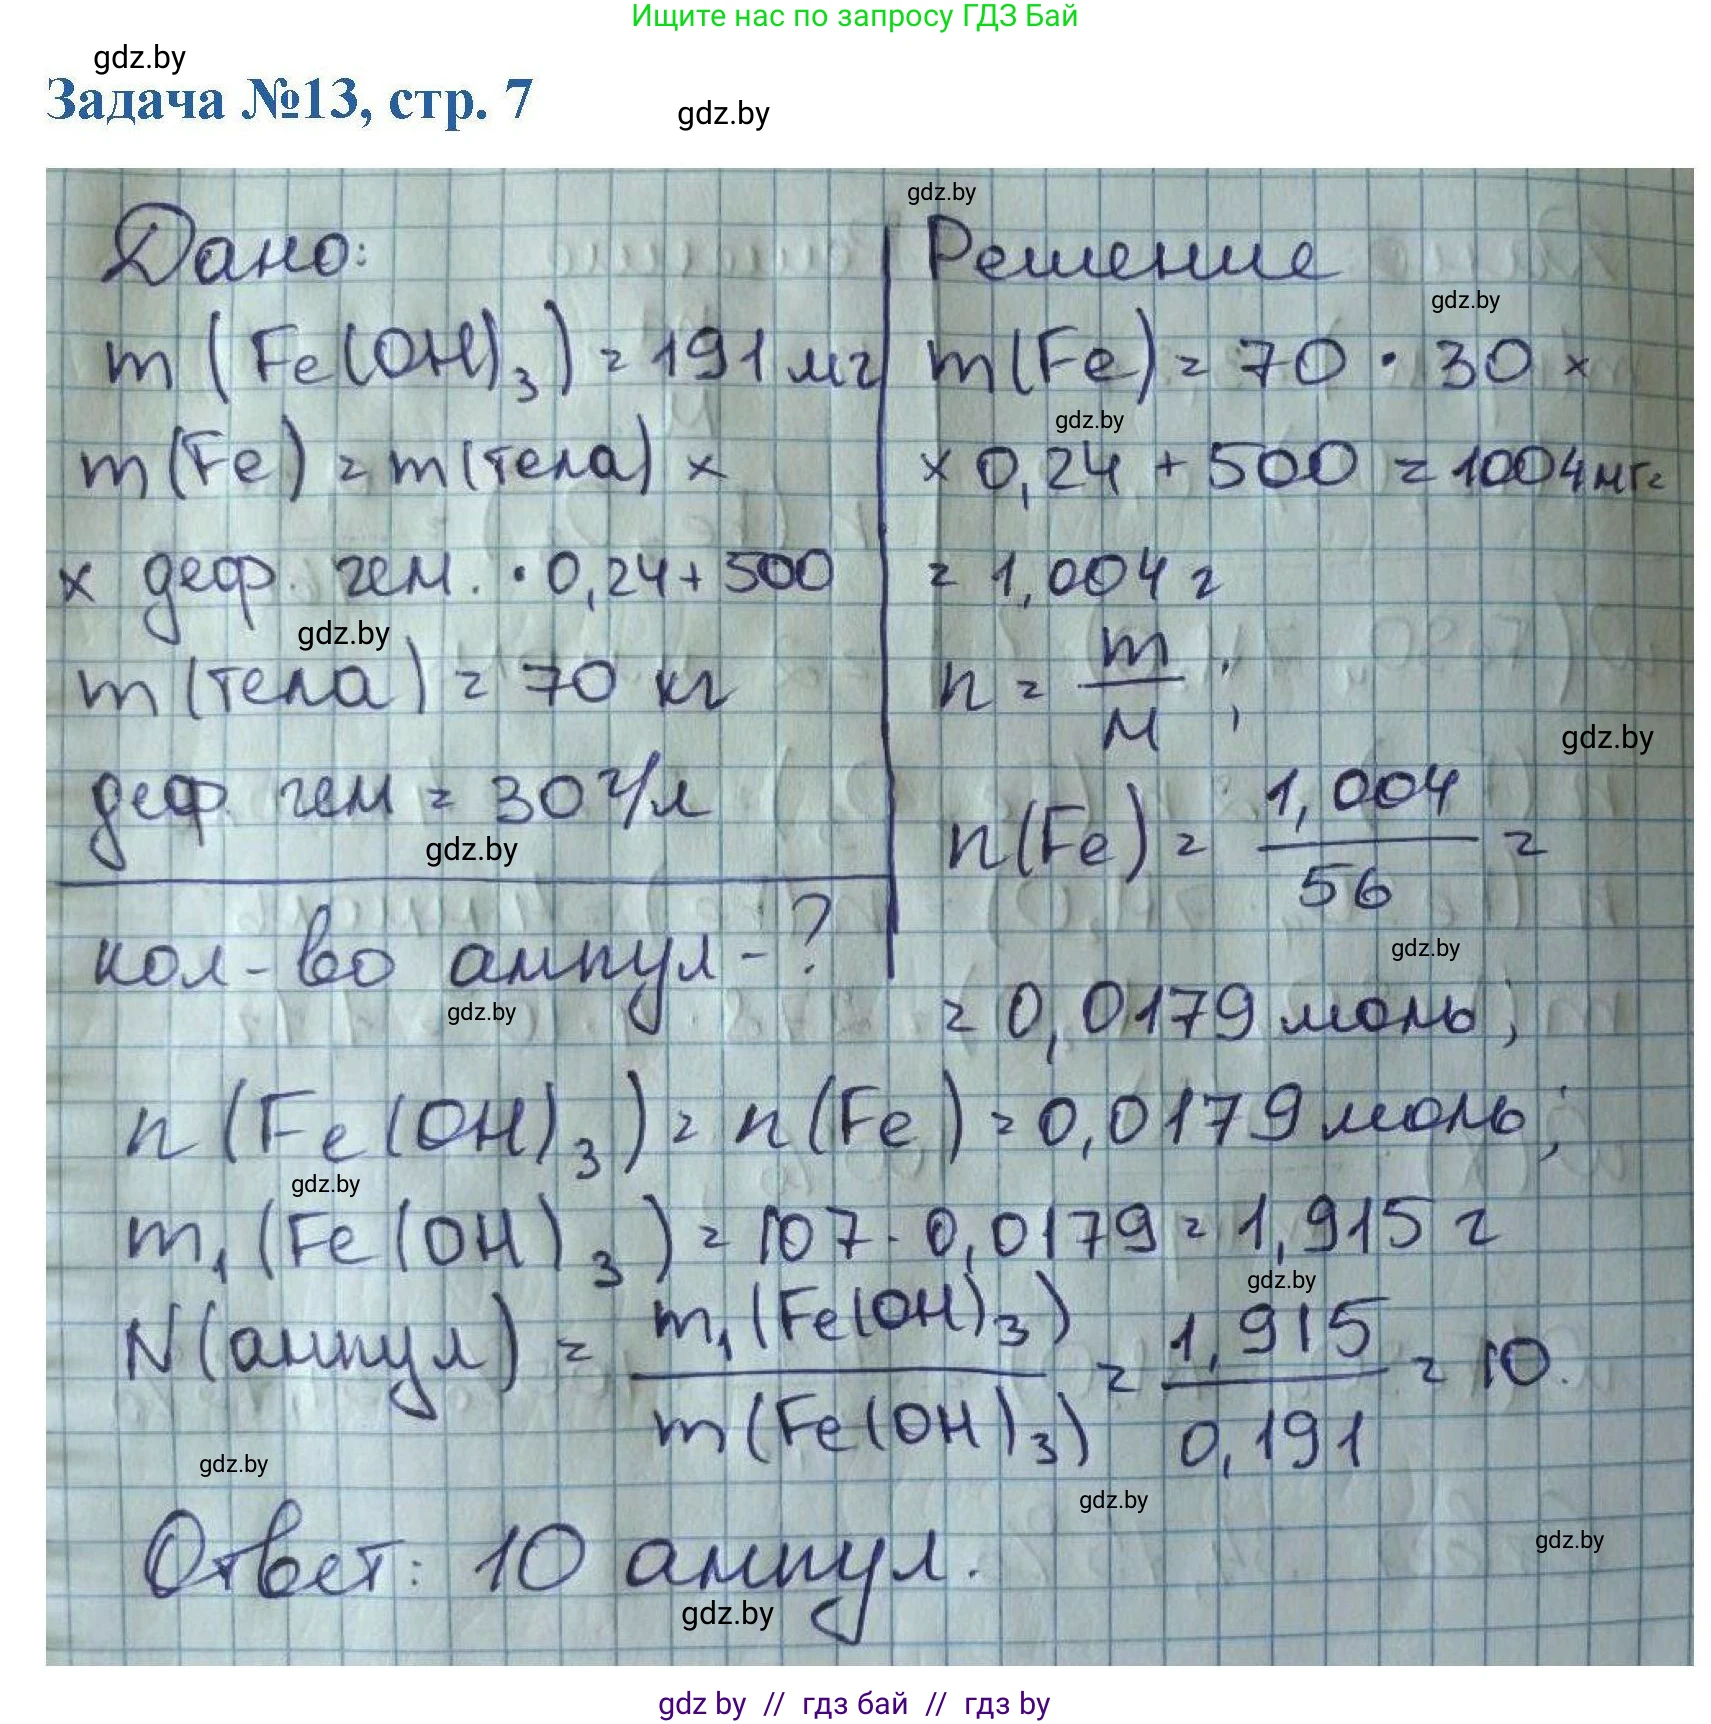 Ищите нас по запросу ГДЗ Бай
gdz.by
Задача №13, стр. 7
gdz.by
gdz.by
Дано:
m (Fe(OH)3) = 191 мг
m(Fe) = m(тела) ×
× деф. гем. · 0,24 + 500
gdz.by
m(тела) = 70 кг
деф. гем = 30 г/л
gdz.by
кол-во ампул - ?
gdz.by
Решение
gdz.by
m(Fe) = 70 · 30 ×
gdz.by
× 0,24 + 500 = 1004 мг =
= 1,004 г
n = m/M ;
gdz.by
n(Fe) = 1,004/56 =
gdz.by
= 0,0179 моль;
n(Fe(OH)3) = n(Fe) = 0,0179 моль;
gdz.by
m1(Fe(OH)3) = 107 · 0,0179 = 1,915 г
gdz.by
N(ампул) = m1(Fe(OH)3)/m(Fe(OH)3) = 1,915/0,191 = 10.
gdz.by
gdz.by
gdz.by
Ответ: 10 ампул.
gdz.by
gdz by // гдз бай // гдз by